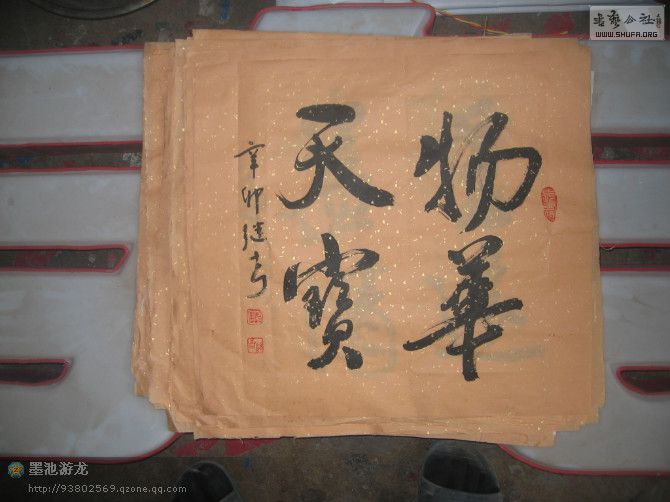 物華
天寶
辛卯继亭
书艺公社
WWW.SHUFA.ORG
墨池游龙
http://93802569.qzone.qq.com